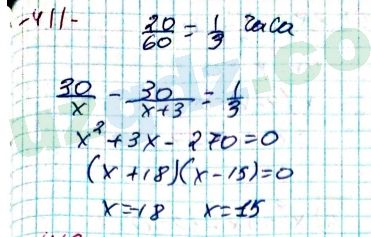 -411-
20/60 = 1/3 часа
30/x - 30/(x+3) = 1/3
x² + 3x - 270 = 0
(x + 18)(x - 15) = 0
x = -18 x = 15